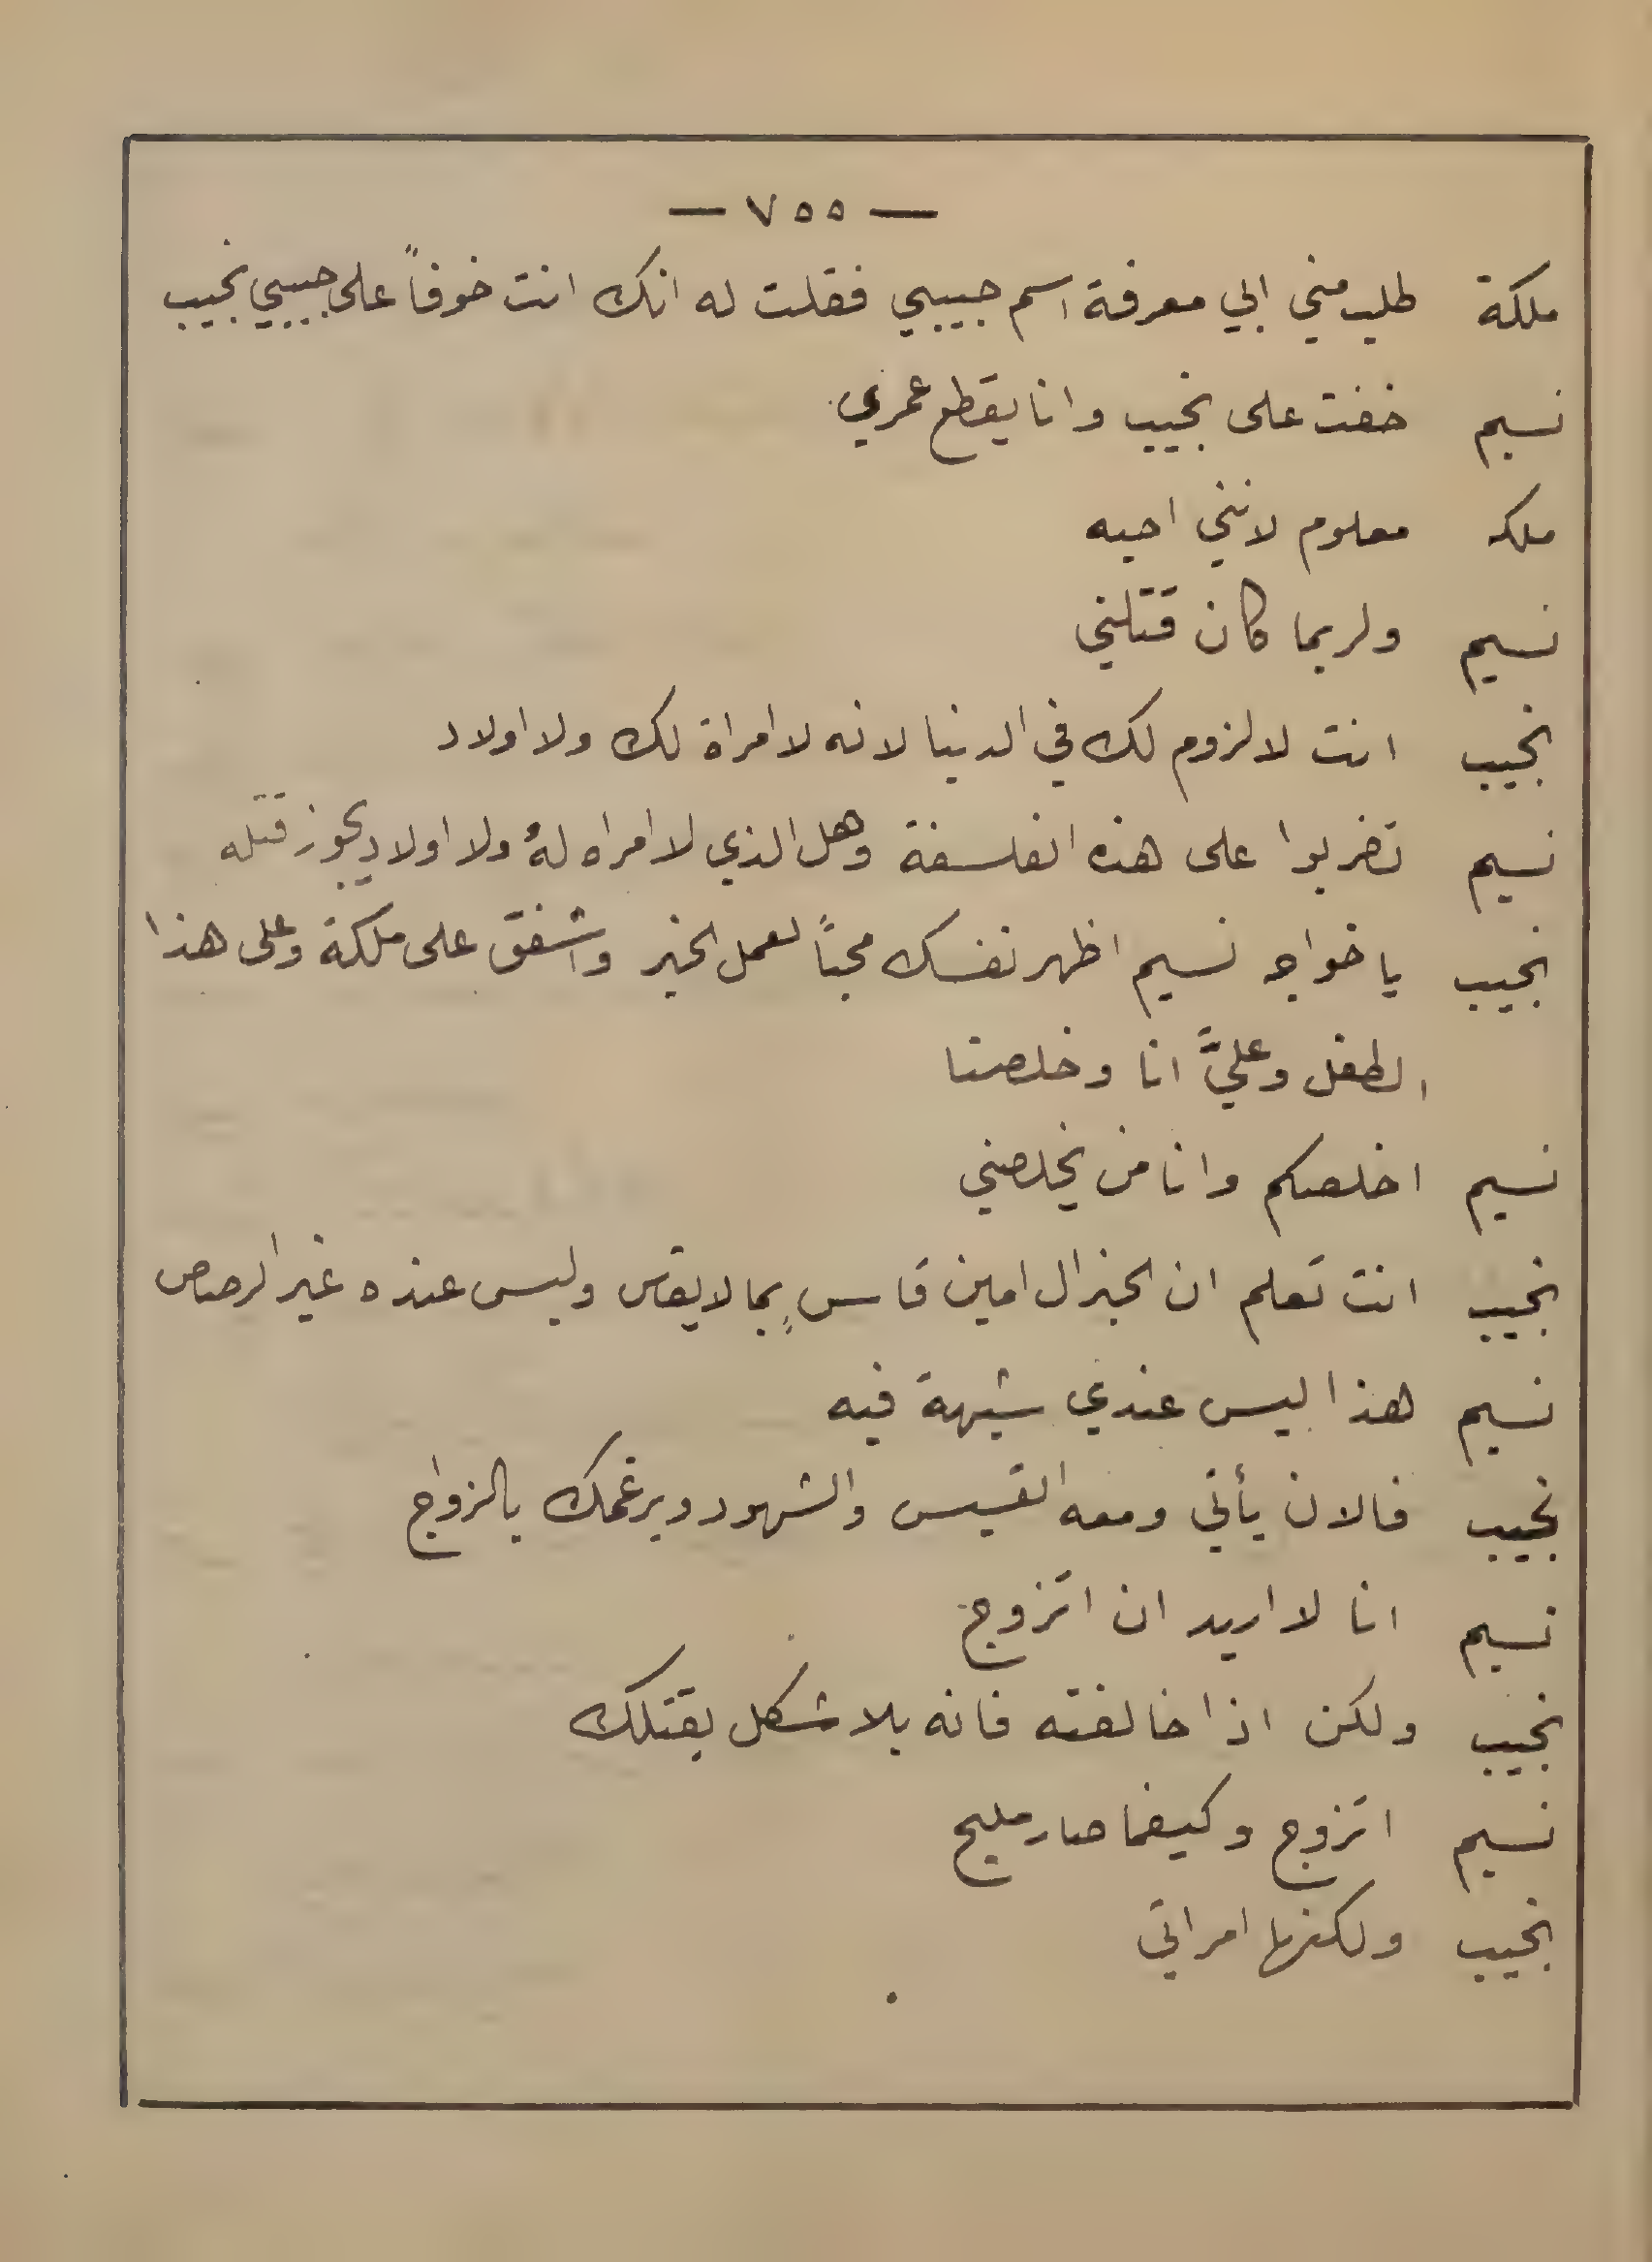 — ٧٥٥ —
ملكة طلب مني ابي معرفة اسم حبيبي فقلت له انك انت خوفاً على حبيبي نجيب
نسيم خفت على نجيب وانا يقطع عمري
ملكه معلوم لانني احبه
نسيم ولربما كان قتلني
نجيب انت لا لزوم لك في الدنيا لانه لا امراة لك ولا اولاد
نسيم تضربوا على هذه الفلسفة وهل الذي لا امراه لهُ ولا اولاد يجوز قتله
نجيب يا خواجه نسيم اظهر نفسك محباً لعمل الخير واشفق على ملكة وعلى هذا
الطفل وعليَّ انا وخلصنا
نسيم اخلصكم وانا من يخلصني
نجيب انت تعلم ان الجنرال امين قاسٍ بما لا يقاس وليس عنده غير الرصاص
نسيم هذا ليس عندي شبهة فيه
نجيب فالان يأتي ومعه القسيس والشهود ويرغمك بالزواج
نسيم انا لا اريد ان اتزوج
نجيب ولكن اذا خالفته فانه بلا شكل يقتلك
نسيم اتزوج وكيفما صار مليح
نجيب ولكنها امراتي